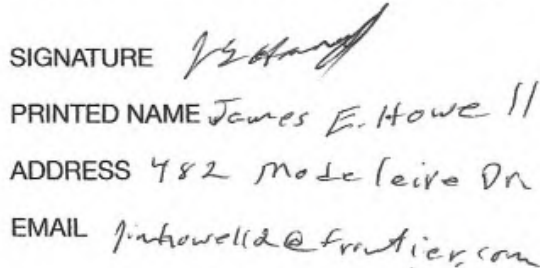 SIGNATURE
PRINTED NAME James E. Howell
ADDRESS 482 Dr
EMAIL jimhowell2@frontier.com